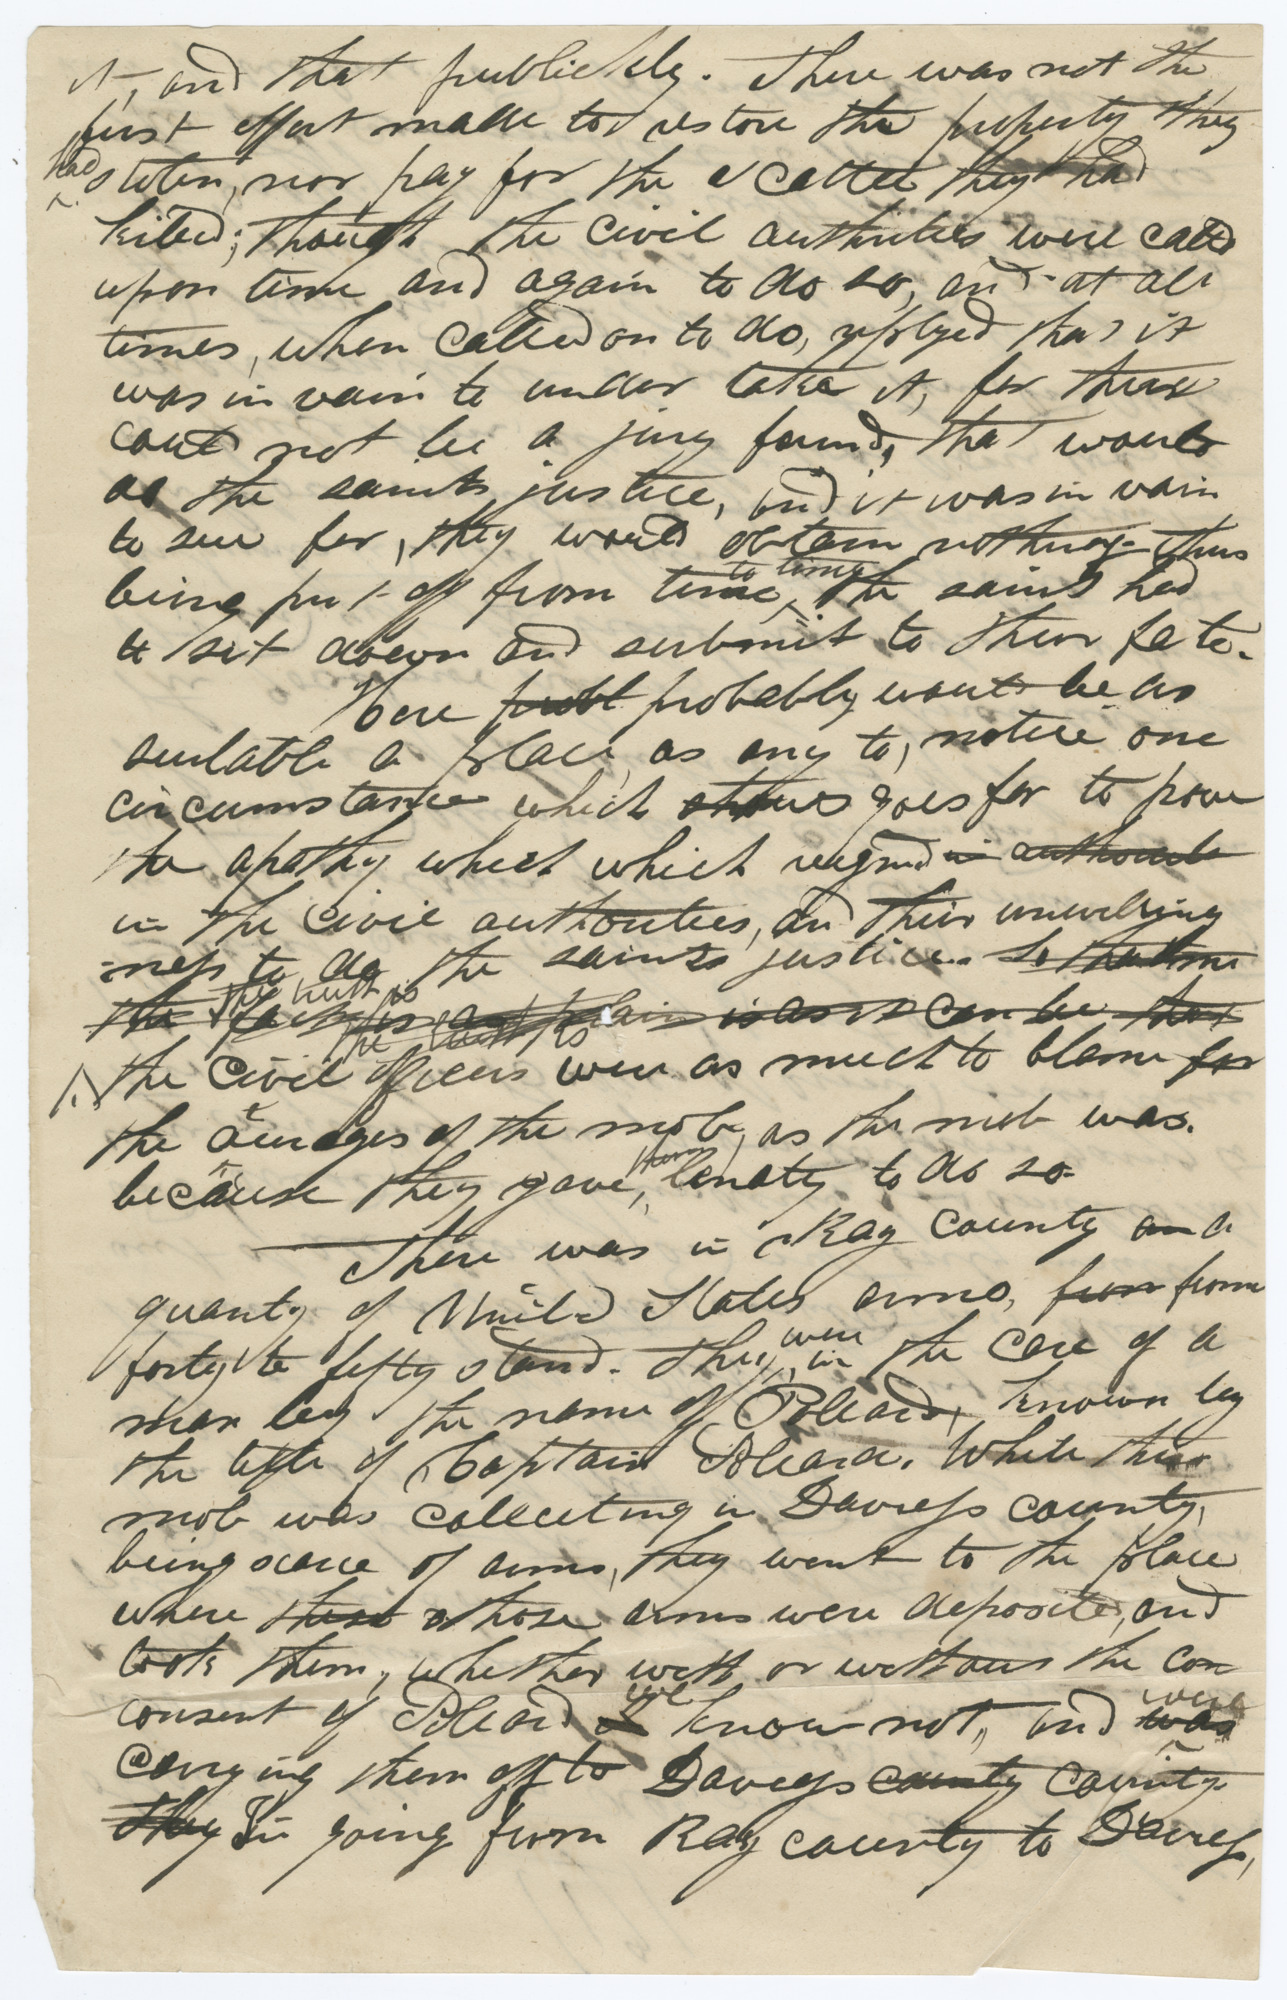 it, and that publickly. There was not the
first effort made to restore the property they
had stolen, nor pay for the cattle they had
killed; though the civil authorities were called
upon time and again to do so, and at all
times, when called on to do, replyed that it
was in vain to under take it, for there
could not be a jury found, that would
do the saints justice, and it was in vain
to sue for, they would obtain nothing. Thus
being put off from time to time, the saints had
to set down and submit to their fate.
Here probl probably would be as
suitable a place, as any to, notice one
circumstance which shows goes far to prove
the apathy which which reigned in authorit
in the civil authorities, and their unwilling
-ness to do the saints justice. So that
the truth is
the fact is as plain is as it can be that
the truth is
the civil officers were as much to blame for
the outrages of the mob, as the mob was.
because they gave them lenaty to do so.
There was in Ray County an a
quanty of United States arms, from from
forty to fifty stand. They were in the care of a
man by the name of Pollard, known by
the title of Captain Pollard. While this
mob was collecting in Daviess county,
being scarce of arms, they went to the place
where these those arms were deposite, and
took them, whether with or without the con
consent of Pollard I we know not, and was were
carrying them off to Daviess county county.
They In going from Ray county to Daviess,